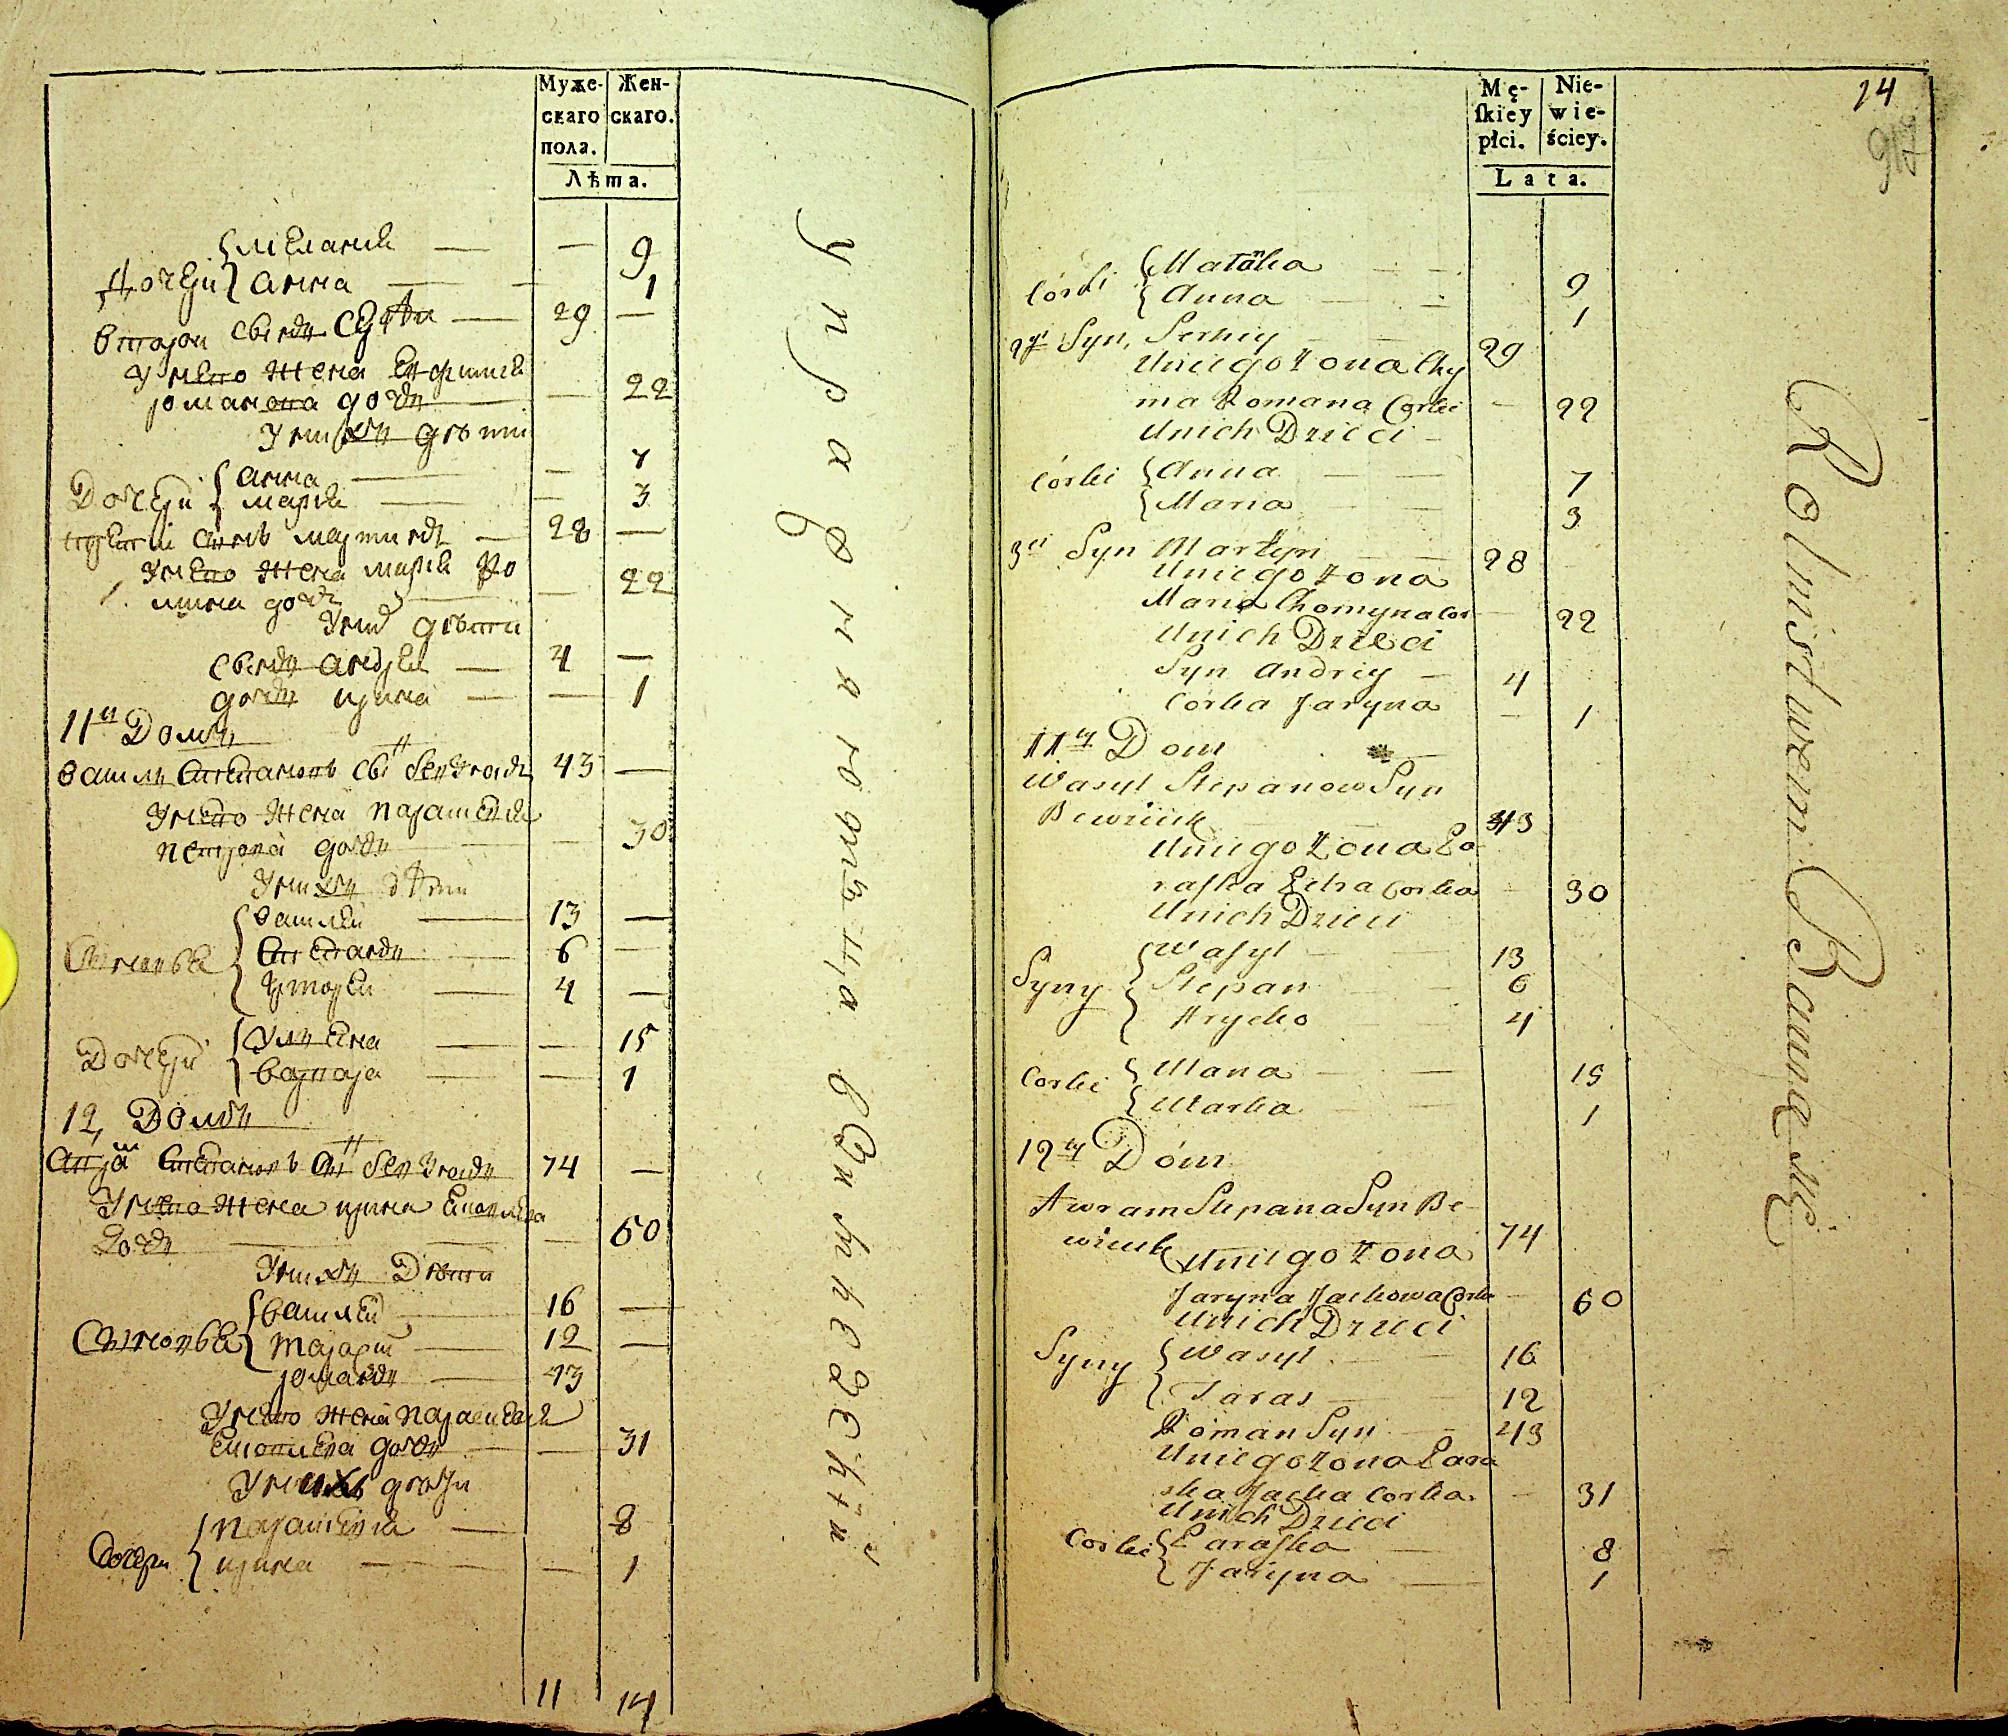 Муже-
скаго
пола.
Жен-
скаго.
Лѣта.
Дочери
мелания — — 9
анна — — 1
второи сынъ Сергѣи — 29 —
У него жена Евфимия
романова дочь — — 22
У нихъ дѣти
Дочери
анна — — 7
мария — — 3
третии сынъ мартинъ — 28 —
У него жена мария Фо
мина дочь — — 22
У них дѣти
сынъ андреи — 4 —
дочь ирина — — 1
11и Домъ
василь Степановъ сынъ 43 —
У него жена параскевия
петрова дочь — — 30
У нихъ дѣти
Сыновья
василеи — 13 —
Степанъ — 6 —
Григореи — 4 —
Дочери
Ульяна — — 15
варвара — — 1
12, Домъ
Степановъ 74 —
У него жена ирина
дочь — — 60
У нихъ Дѣти
Сыновья
василеи — 16 —
тарасии — 12 —
романъ — 43
У него жена параскевия
дочь — — 31
У нихъ дѣти
дочери
параскевия — 8
ирина — — 1
11 14
упражняющійся въ земледеліи
Mę-
ſkiey
płci.
Nie-
wie-
ściey.
Lata.
24
917
Córki
Małaka — — 9
Anna — — 1
2gi Syn, Serhiy — 29
Uniego Zona Chy
ma Romana Corki — 22
Unich Dzieci —
Córki
Anna — — 7
Maria — — 3
3ci Syn Martyn — — 28
Uniego Zona
Maria Chomyna Cor — 22
Unich Dzieci
Syn Andrey — 4
Córka Jaryna — 1
11ty Dom
Wasyl Stepanow Syn
43
Uniego Zona Pa
raſka Petra Corka — 30
Unich Dzieci
Syny
Waſyl — — 13
Stepan — — 6
Hrycko 4
Corki
Maria — — 15
Warka — — 1
12ty Dóm
Awram Stepana Syn Be-
74
Uniego Zona
Jaryna Jackowa Corka — 60
Unich Dzieci
Syny
Wasyl — — 16
Taras — 12
Roman Syn — 43
Uniego Zona Para
ska Jacka Corka — 31
Unich Dzieci
Corki
Paraſka — 8
Jaryna — 1
Rolnistwem Bawią się